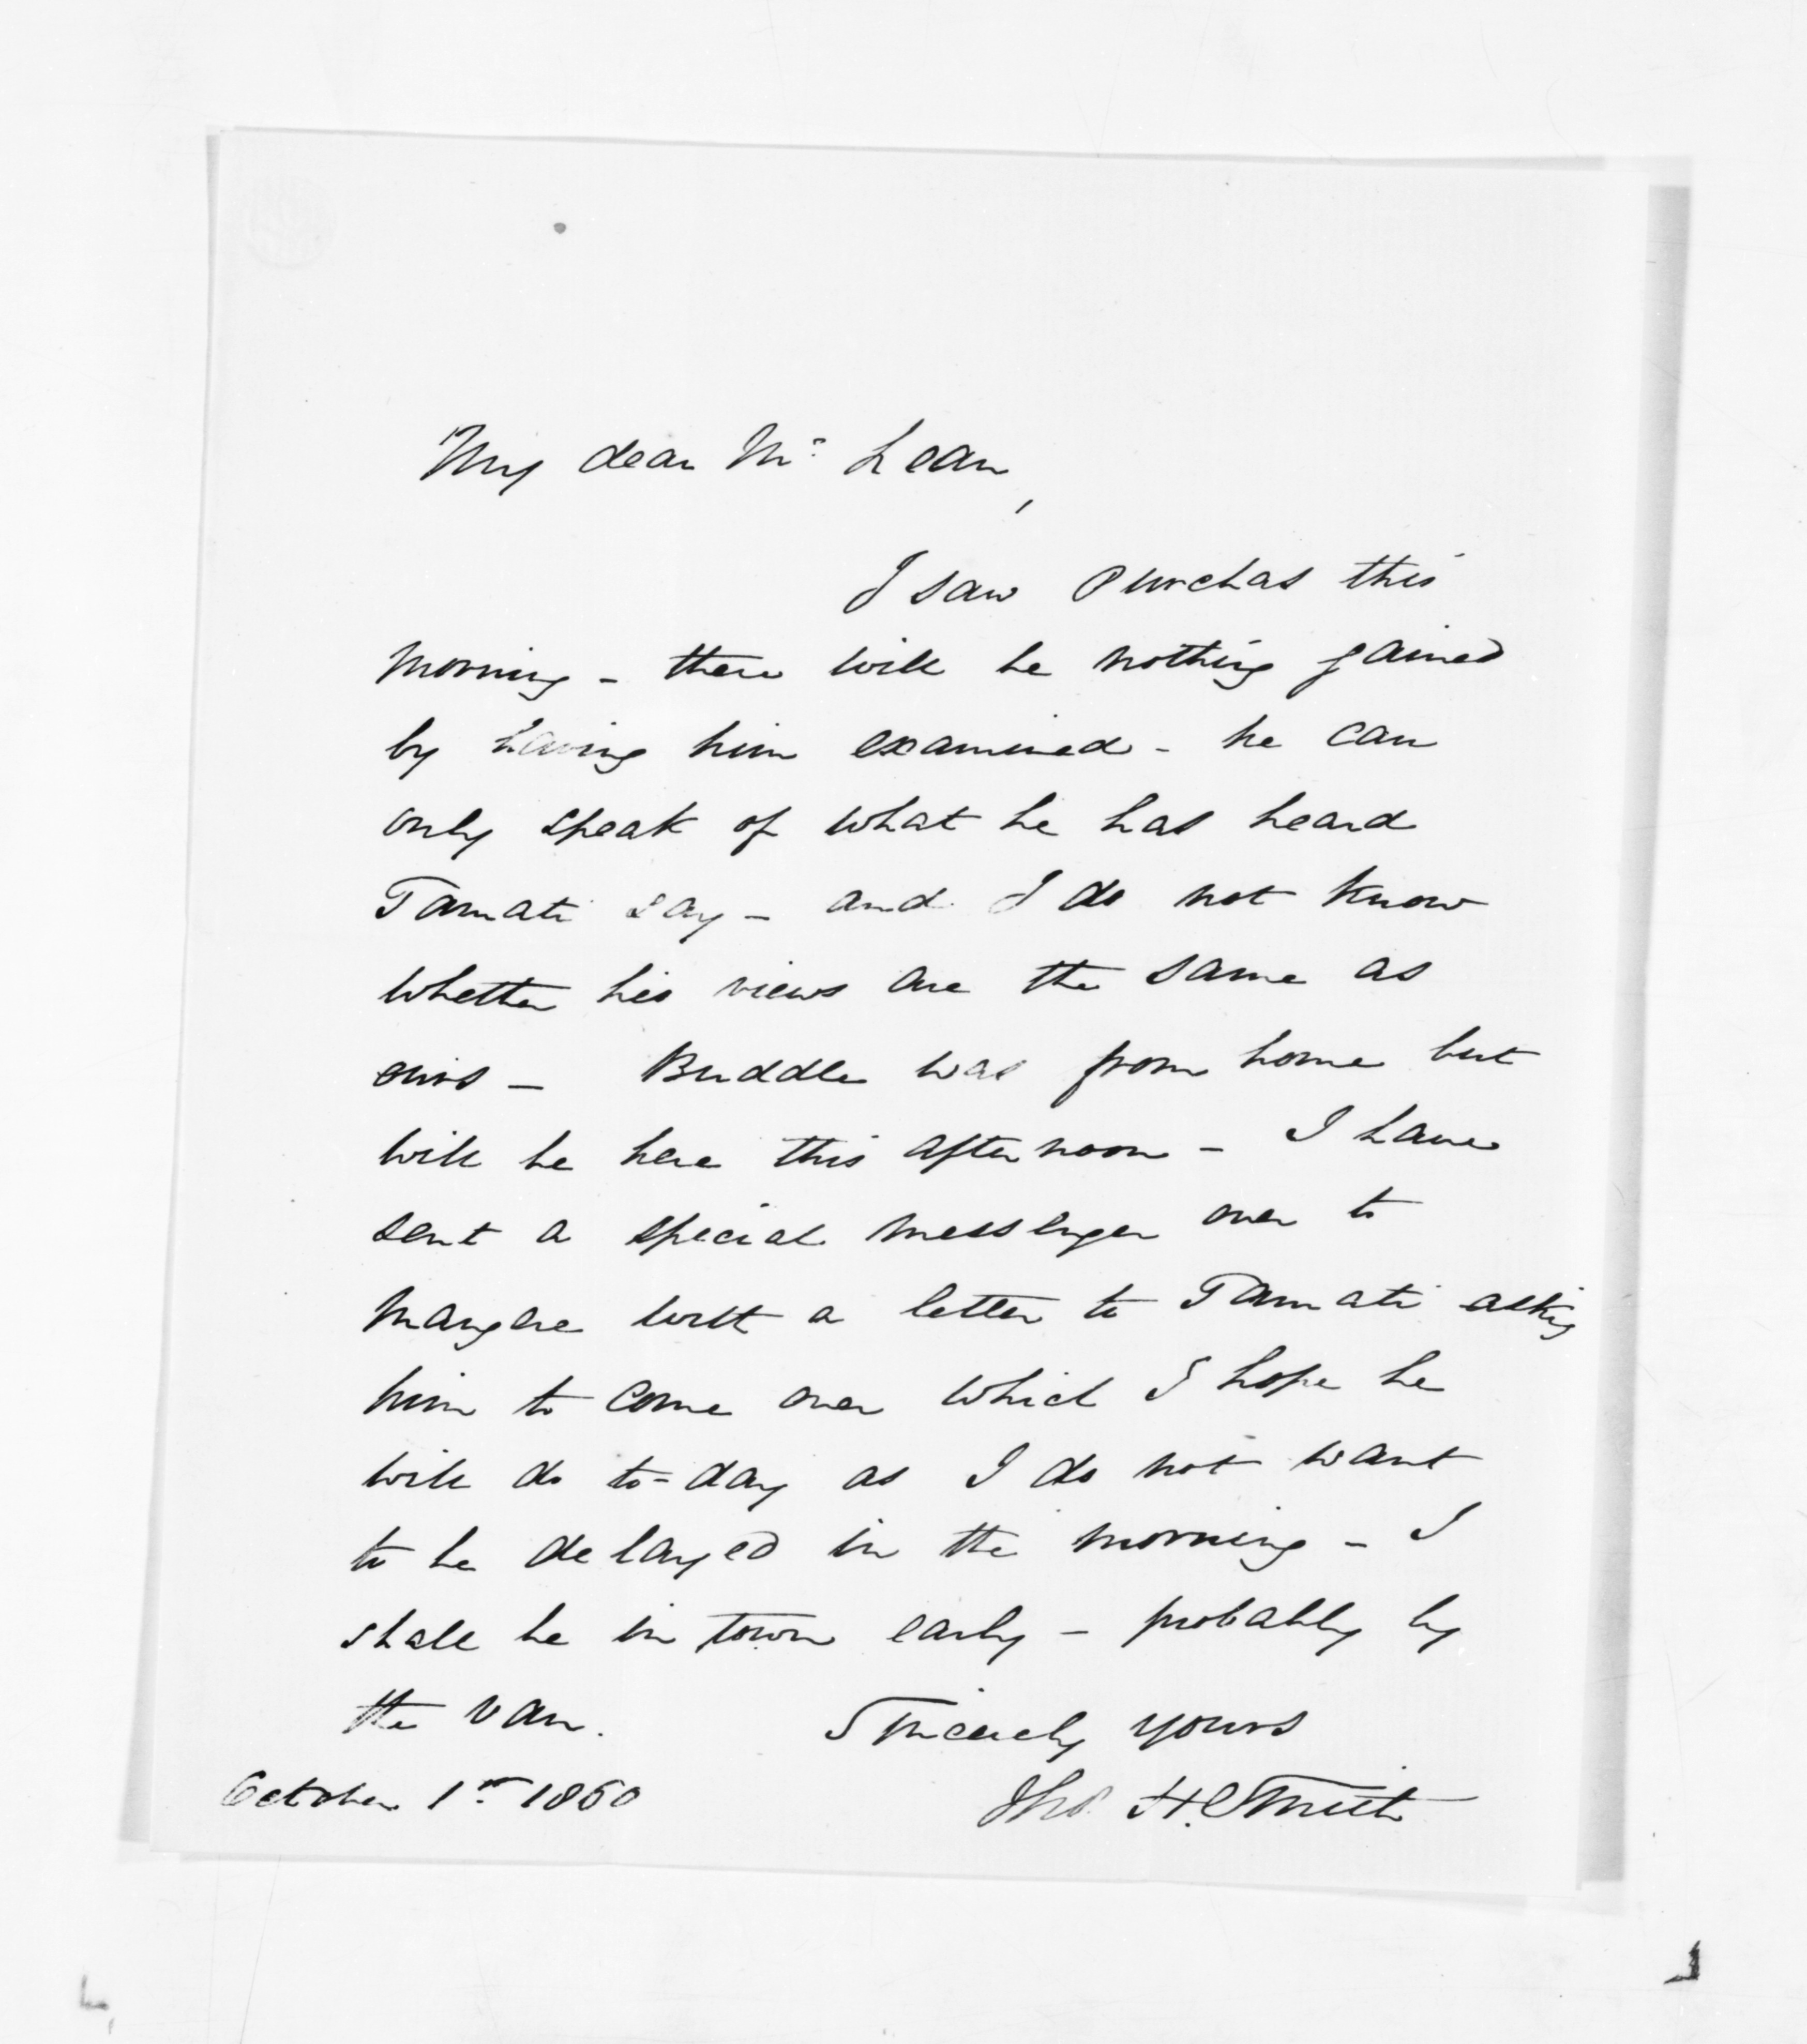 My dear Mc Lean,
I saw Purchas this
morning - there will be nothing gained
by having him examined - he can
only speak of what he has heard
Tamati say - and I do not know
whether his views are the same as
ours - Buddle was from home but
will be here this afternoon - I have
sent a special messenger over to
Mangere with a letter to Tamati asking
him to come over which I hope he
will do to-day as I do not want
to be delayed in the morning - I
shall be in town early - probably by
the van.
Sincerely yours
October 1st 1860
Thos. H. Smith